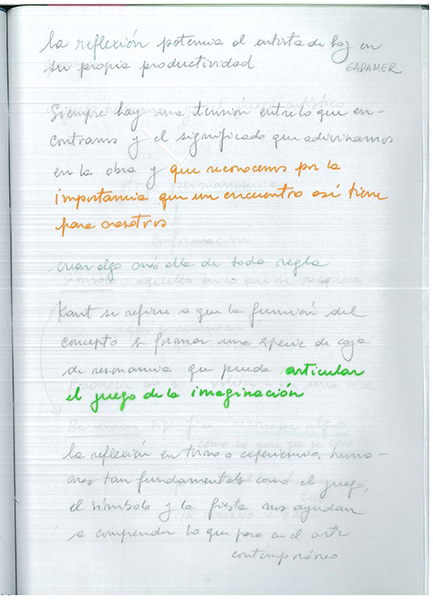 la reflexión potencia al artista de hoy en
su propia productividad
GADAMER
Siempre hay una tensión entre lo que en-
contramos y el significado que adivinamos
en la obra y que reconocemos por la
importancia que un encuentro así tiene
para nosotros
crear algo más allá de toda regla
Kant se refiere a que la función del
concepto es formar una especie de caja
de resonancia que pueda articular
el juego de la imaginación
la reflexión en torno a experiencias huma-
nas tan fundamentales como el juego,
el símbolo y la fiesta nos ayudan
a comprender lo que pasa en el arte
contemporáneo